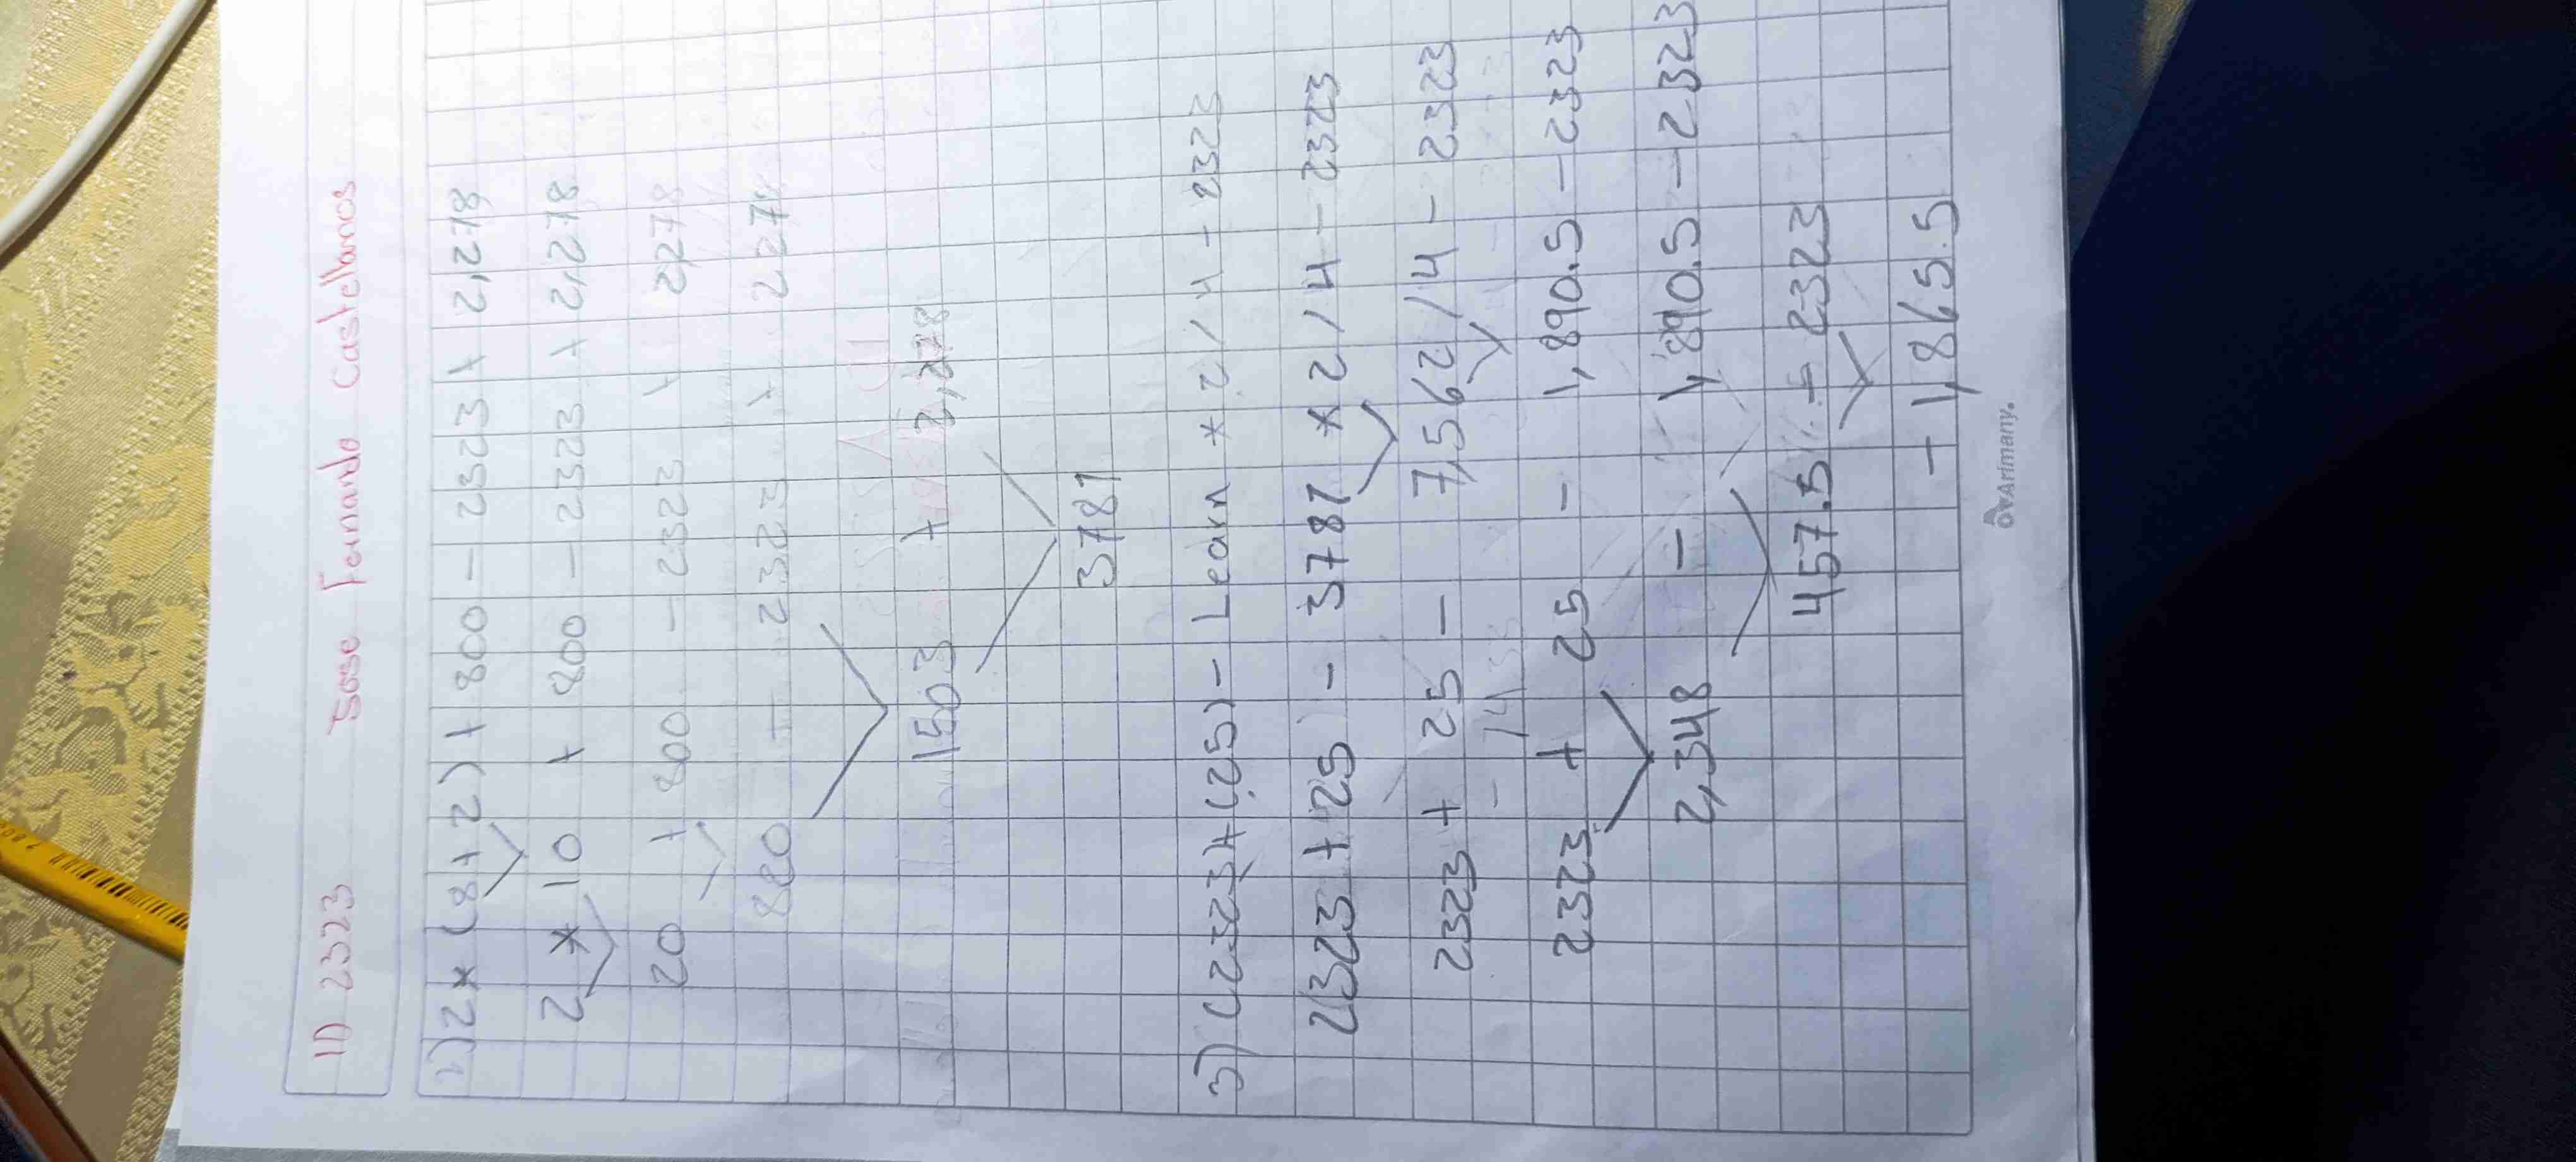 ID 2323 Jose Fernando Castellanos
2) 2 * (8 + 2) + 800 - 2323 + 2,278
2 * 10 + 800 - 2323 + 2,278
20 + 800 - 2323 + 2278
820 - 2323 + 2278
1503 + 2,278
3781
3) (2323) + (25) - Learn * 2 / 4 - 2323
2323 + 25) - 3781 * 2 / 4 - 2323
2323 + 25 - 7,562 / 4 - 2323
2323 + 25 - 1,890.5 - 2323
2,348 - 1,890.5 - 2323
457.5 - 2323
- 1,865.5
Arimany.